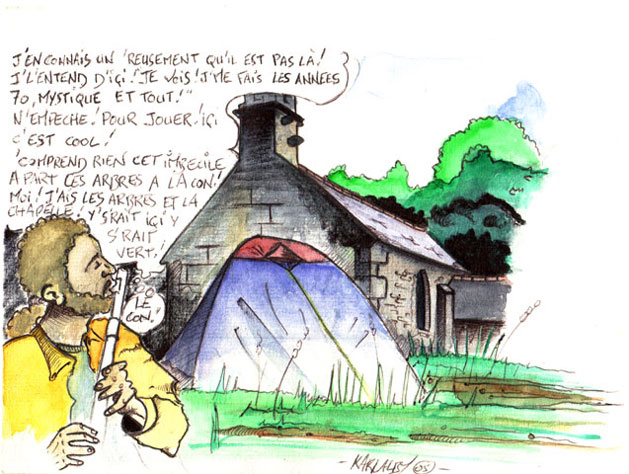 J'EN CONNAIS UN 'REUSEMENT QU'IL EST PAS LÀ!
J'L'ENTEND D'IÇI! "JE VOIS! J'ME FAIS LES ANNÉES
70, MYSTIQUE ET TOUT!"
N'EMPECHE! POUR JOUER! IÇI
C'EST COOL!
COMPREND RIEN CET IMBECILE
A PART CES ARBRES A LA CON!
MOI! J'AIS LES ARBRES ET LA
CHAPELLE! Y'S'RAIT IÇI Y
S'RAIT
VERT!
LE
CON!